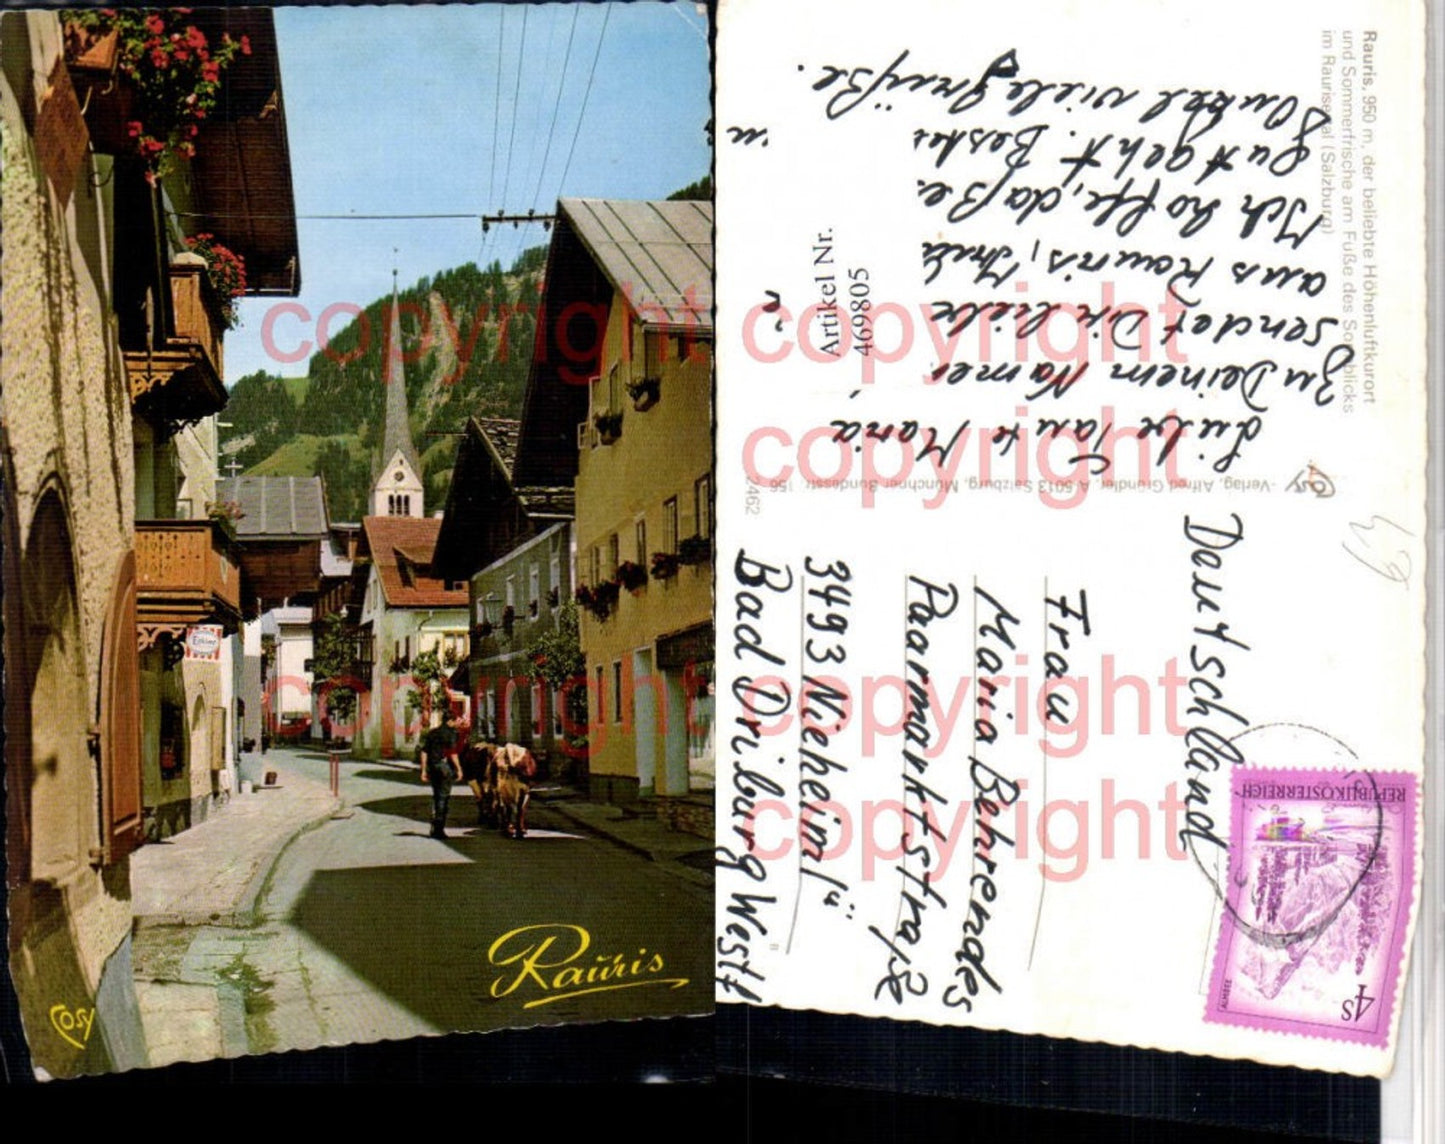 Rauris
COSY
Esküner
Rauris, 950 m, der beliebte Höhenluftkurort
und Sommerfrische am Fuße des Sonnblicks
im Raurisertal (Salzburg)
Liebe Tante Maria,
Zu Deinem Namen
sendet Dir liebe
aus Rauris,
Ich hoffe, daß
gut geht. Beste
Onkel viele Grüße.
COSY
-Verlag, Alfred Gründler, A 5013 Salzburg, Münchner Bundesstr. 156
2462
Artikel Nr.
469805
Deutschland
Frau
Maria Behrendes
Paarmarktstraße
3493 Nieheim
Bad Driburg Westf
REPUBLIK ÖSTERREICH
4S
ALMSEE
49
B
copyright copyright
copyright
copyright copyright
copyright